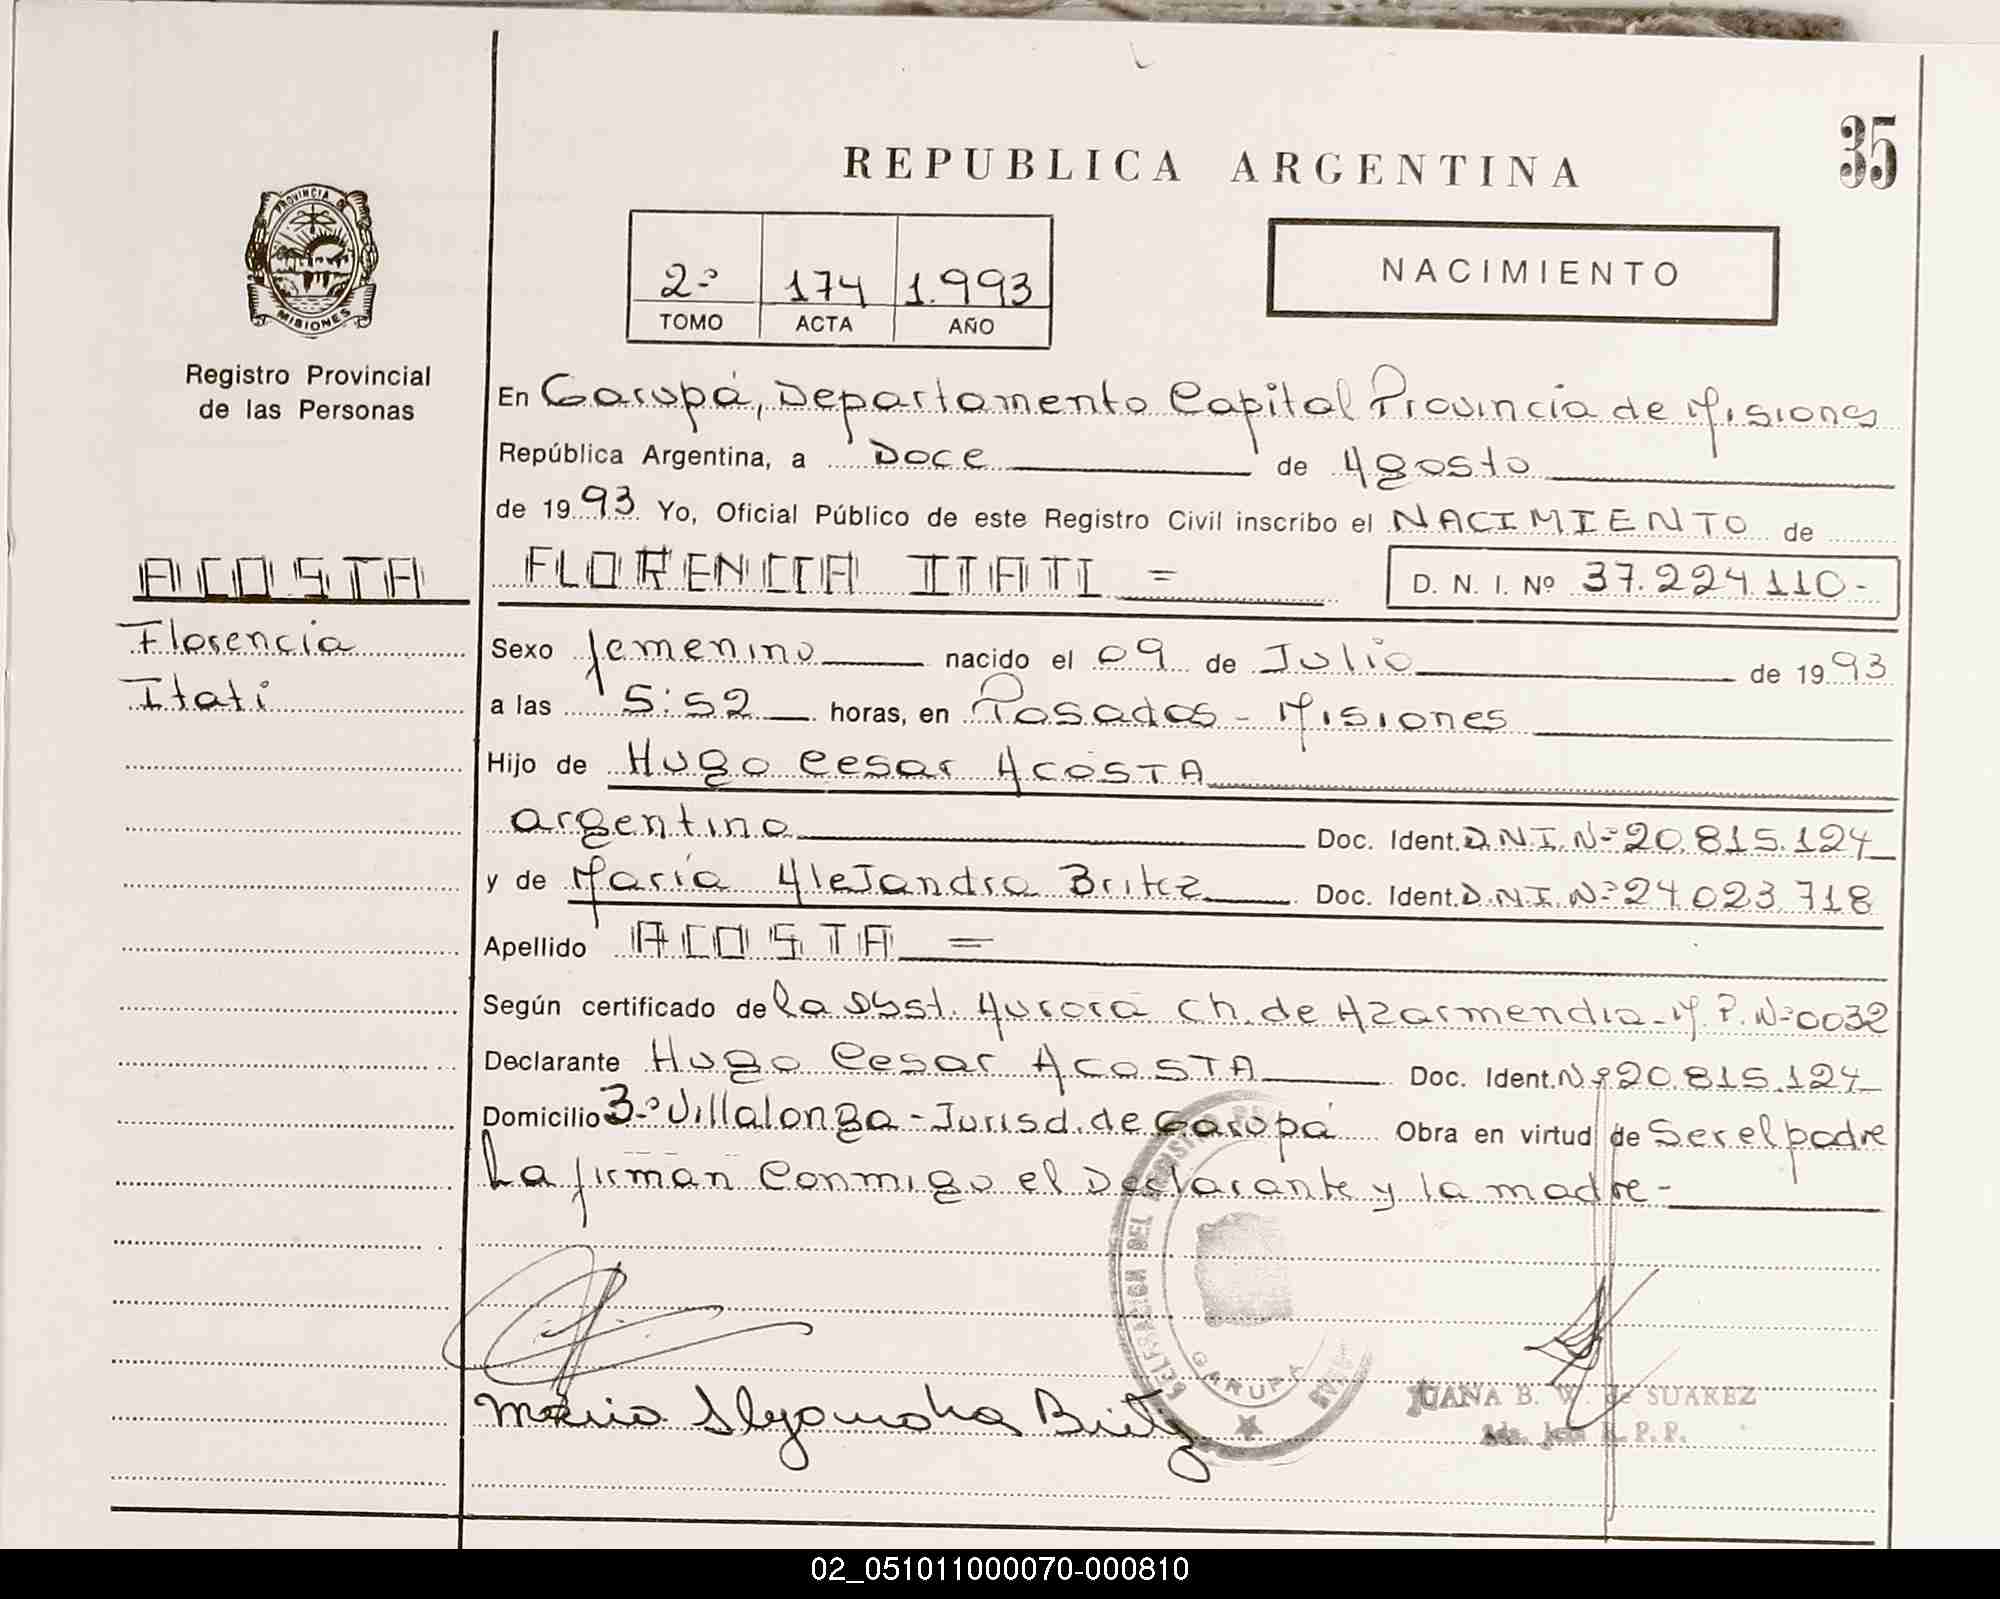 35
REPUBLICA ARGENTINA
PROVINCIA DE
MISIONES
Registro Provincial
de las Personas
2º 174 1.993
TOMO ACTA AÑO
NACIMIENTO
En Garupá, Departamento Capital Provincia de Misiones
República Argentina, a Doce de Agosto
de 1993 Yo, Oficial Público de este Registro Civil inscribo el NACIMIENTO de
ACOSTA FLORENCIA ITATI = D. N. I. Nº 37.224.110-
Florencia Sexo femenino nacido el 09 de Julio de 1993
Itati a las 5:52 horas, en Posadas - Misiones
Hijo de Hugo Cesar ACOSTA
argentino Doc. Ident. D.N.I. Nº 20.815.124
y de María Alejandra Britez Doc. Ident. D.N.I. Nº 24.023.718
Apellido ACOSTA =
Según certificado de la Obst. Aurora Ch. de Azarmendia - M.P. Nº 0032
Declarante Hugo Cesar ACOSTA Doc. Ident. Nº 20.815.124
Domicilio Bº Villalonga - Jurisd. de Garupá Obra en virtud de Ser el padre
La firman Conmigo el Declarante y la madre -
DELEGACION DEL REGISTRO
GARUPA
Maria Alejandra Britez
JUANA B. W. de SUAREZ
R. P. P.
02_051011000070-000810